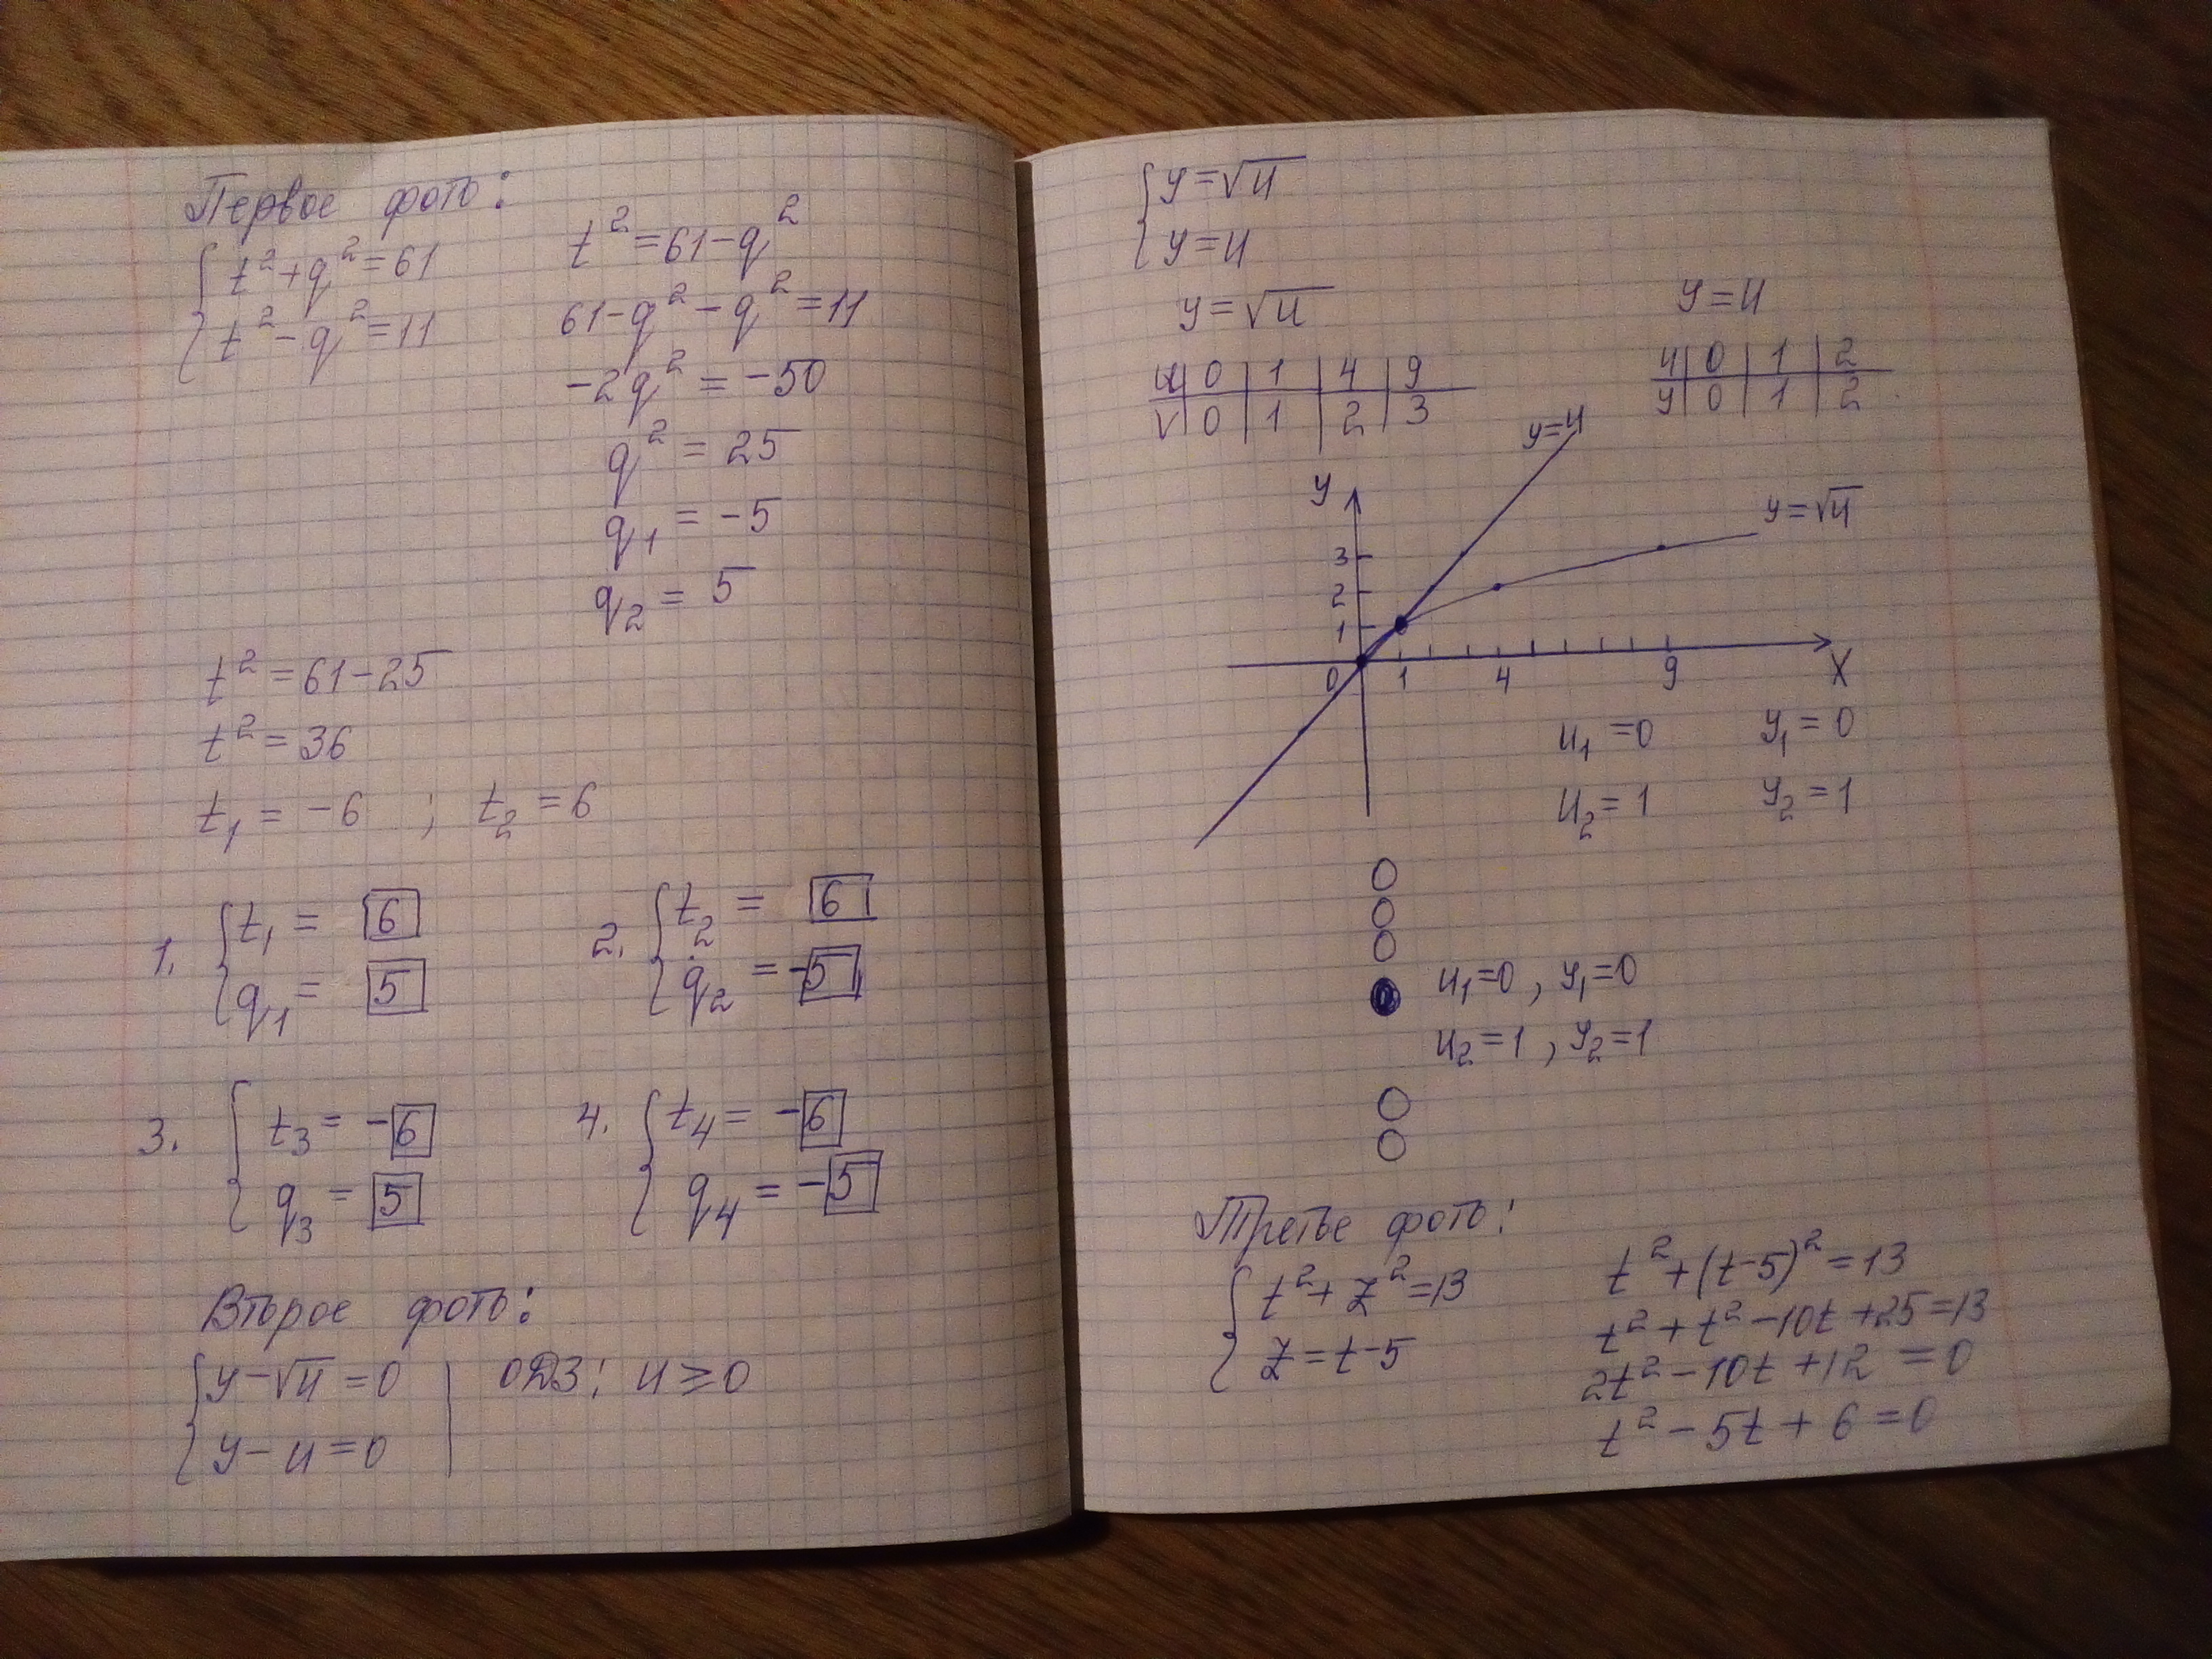 Первое фото:
{ t² + q² = 61
{ t² - q² = 11
t² = 61 - q²
61 - q² - q² = 11
-2q² = -50
q² = 25
q₁ = -5
q₂ = 5
t² = 61 - 25
t² = 36
t₁ = -6 ; t₂ = 6
1. { t₁ = 6
{ q₁ = 5
2. { t₂ = 6
{ q₂ = -5
3. { t₃ = -6
{ q₃ = 5
4. { t₄ = -6
{ q₄ = -5
Второе фото:
{ y - √u = 0 | ОДЗ: u ≥ 0
{ y - u = 0
{ y = √u
{ y = u
y = √u
u | 0 | 1 | 4 | 9
√ | 0 | 1 | 2 | 3
y = u
u | 0 | 1 | 2
y | 0 | 1 | 2
y = u
y
y = √u
3
2
1
0 1 4 9 X
u₁ = 0 y₁ = 0
u₂ = 1 y₂ = 1
u₁ = 0 , y₁ = 0
u₂ = 1 , y₂ = 1
Третье фото:
{ t² + z² = 13
{ z = t - 5
t² + (t - 5)² = 13
t² + t² - 10t + 25 = 13
2t² - 10t + 12 = 0
t² - 5t + 6 = 0